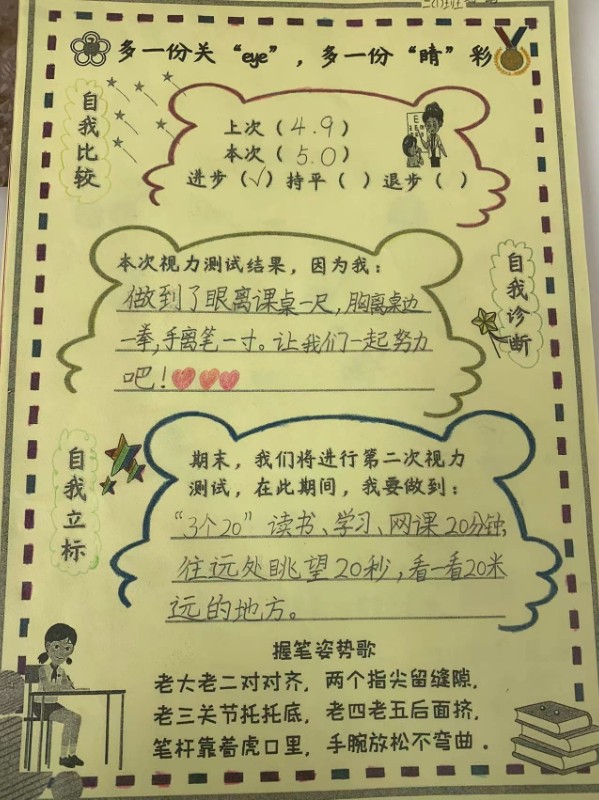 多一份关“eye”，多一份“睛”彩
自我比较
上次（4.9）
本次（5.0）
进步（√）持平（ ）退步（ ）
本次视力测试结果，因为我：
做到了眼离课桌一尺，胸离桌边
一拳，手离笔一寸。让我们一起努力
吧！
自我诊断
自我立标
期末，我们将进行第二次视力
测试，在此期间，我要做到：
“3个20”读书、学习、网课20分钟，
往远处眺望20秒，看一看20米
远的地方。
握笔姿势歌
老大老二对对齐，两个指尖留缝隙，
老三关节托托底，老四老五后面挤，
笔杆靠着虎口里，手腕放松不弯曲．